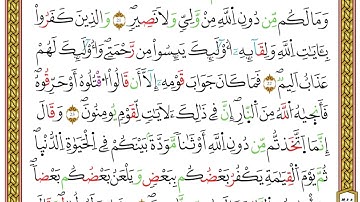 وَمَا لَكُم مِّن دُونِ ٱللَّهِ مِن وَلِيٍّ وَلَا نَصِيرٍ ۝٢٢ وَٱلَّذِينَ كَفَرُوا۟
بِـَٔايَـٰتِ ٱللَّهِ وَلِقَآئِهِۦٓ أُو۟لَـٰٓئِكَ يَئِسُوا۟ مِن رَّحْمَتِى وَأُو۟لَـٰٓئِكَ لَهُمْ
عَذَابٌ أَلِيمٌ ۝٢٣ فَمَا كَانَ جَوَابَ قَوْمِهِۦٓ إِلَّآ أَن قَالُوا۟ ٱقْتُلُوهُ أَوْ حَرِّقُوهُ
فَأَنجَىٰهُ ٱللَّهُ مِنَ ٱلنَّارِ إِنَّ فِى ذَٰلِكَ لَـَٔايَـٰتٍ لِّقَوْمٍ يُؤْمِنُونَ ۝٢٤ وَقَالَ
إِنَّمَا ٱتَّخَذْتُم مِّن دُونِ ٱللَّهِ أَوْثَـٰنًا مَّوَدَّةَ بَيْنِكُمْ فِى ٱلْحَيَوٰةِ ٱلدُّنْيَا
ثُمَّ يَوْمَ ٱلْقِيَـٰمَةِ يَكْفُرُ بَعْضُكُم بِبَعْضٍ وَيَلْعَنُ بَعْضُكُم بَعْضًا